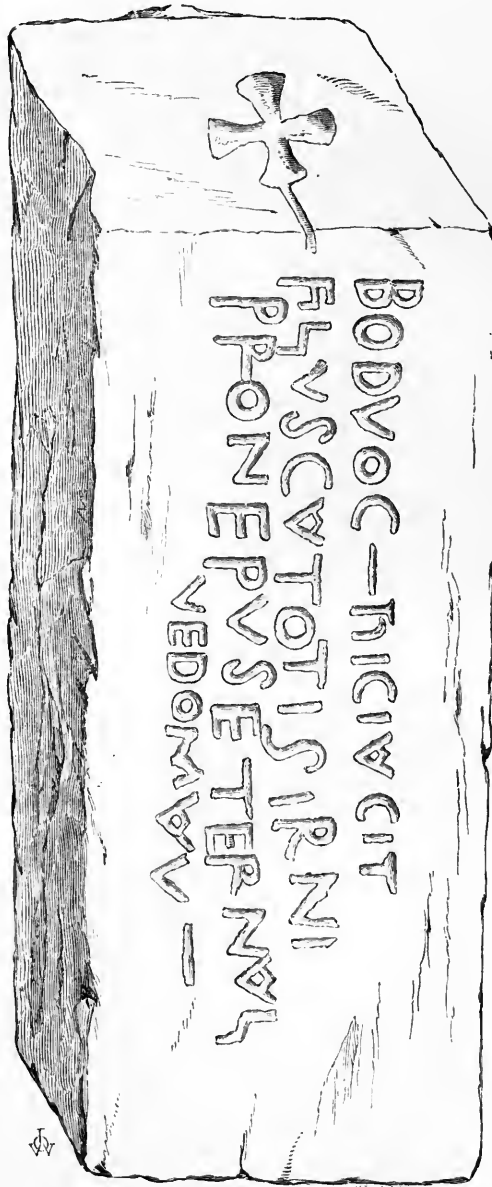 BODVOC—hICIACIT
FILIVSCATOTISIRNI
PRONEPVSETERNALI
VEDOMAV—